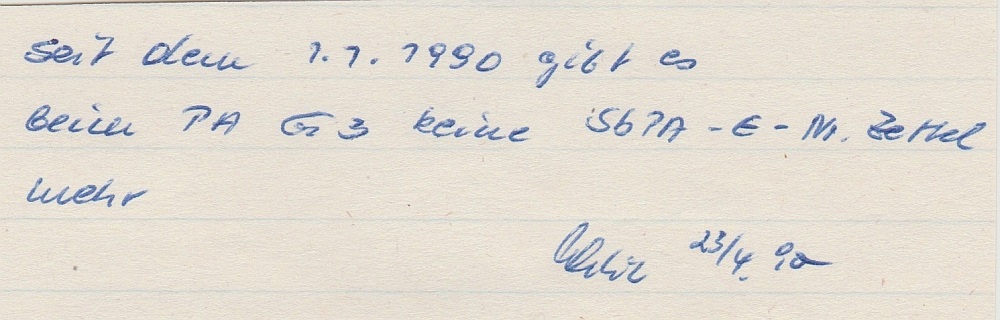 seit dem 1.1.1990 gibt es
beim PA G 3 keine SbPA-E-Nr. Zettel
mehr
23/4. 90